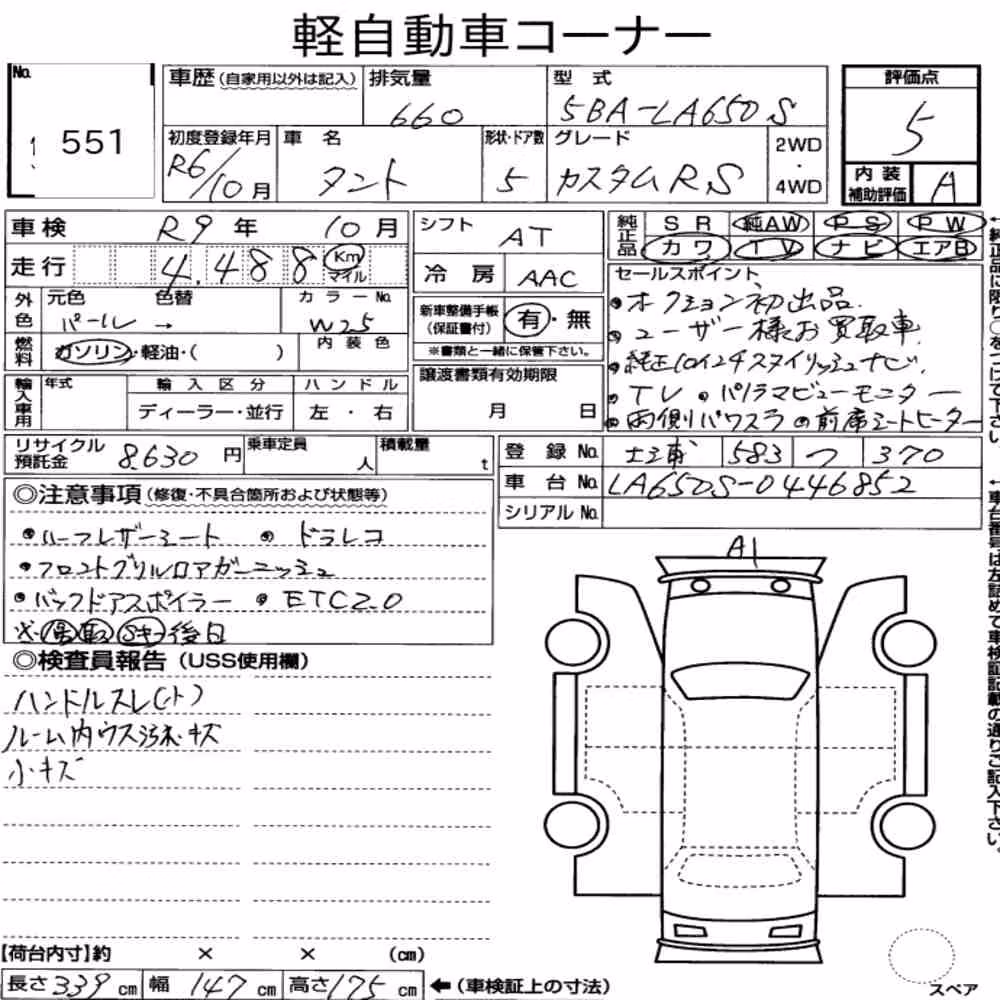 軽自動車コーナー
No. 551
車歴(自家用以外は記入) 排気量 660 型式 5BA-LA650S 評価点 5
初度登録年月 R6/10月 車名 タント 形状・ドア数 5 グレード カスタムRS 2WD・4WD 内装補助評価 A
車検 R9年 10月 シフト AT 純正品 SR 純AW PS PW
走行 4,488 Km マイル 冷房 AAC カワ TV ナビ エアB
外色 元色 パール 色替 → カラーNo. W25 内装色
新車整備手帳(保証書付) 有・無
※書類と一緒に保管下さい。
燃料 ガソリン・軽油・( )
セールスポイント
●オクション初出品
●ユーザー様お買取車
●純正10インチスタイリッシュナビ
●TV ●パノラマビューモニター
●両側パワスラ ●前席シートヒーター
輸入車用 年式 輸入区分 ディーラー・並行 ハンドル 左・右
譲渡書類有効期限 月 日
リサイクル預託金 8,630円 乗車定員 人 積載量 t
登録No. 土浦 583 つ 370
車台No. LA650S-0446852
シリアルNo.
◎注意事項(修復・不具合箇所および状態等)
●ハーフレザーシート ●ドラレコ
●フロントグリルロアガーニッシュ
●バックドアスポイラー ●ETC2.0
※ Sキー後日
◎検査員報告(USS使用欄)
ハンドルスレ(小)
ルーム内ウス汚れ・キズ
小キズ
A1
【荷台内寸】約 × × (cm)
長さ339cm 幅147cm 高さ175cm ←(車検証上の寸法)
スペア
←純正品に限り○をつけて下さい。
←車台番号は左詰めで車検証記載の通りご記入下さい。